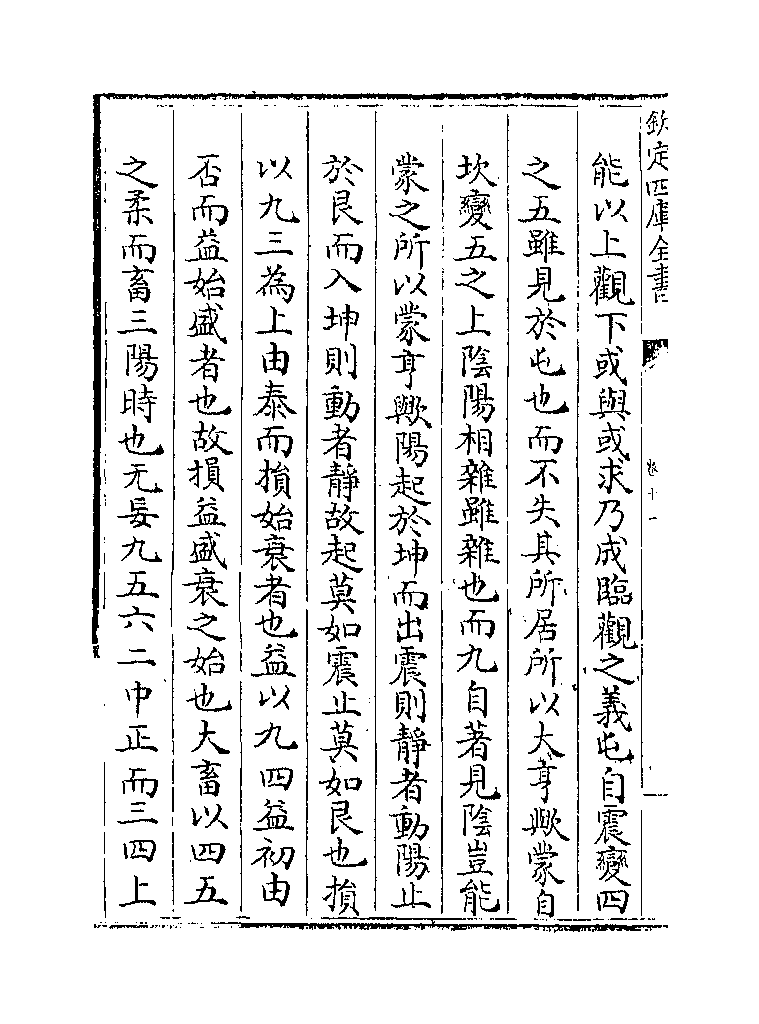 欽定四庫全書
卷十一
能以上觀下或與或求乃成臨觀之義屯自震變四
之五雖見於屯也而不失其所居所以大亨歟蒙自
坎變五之上陰陽相雜雖雜也而九自著見陰豈能
蒙之所以蒙亨歟陽起於坤而出震則靜者動陽止
於艮而入坤則動者靜故起莫如震止莫如艮也損
以九三為上由泰而損始衰者也益以九四益初由
否而益始盛者也故損益盛衰之始也大畜以四五
之柔而畜三陽時也无妄九五六二中正而三四上